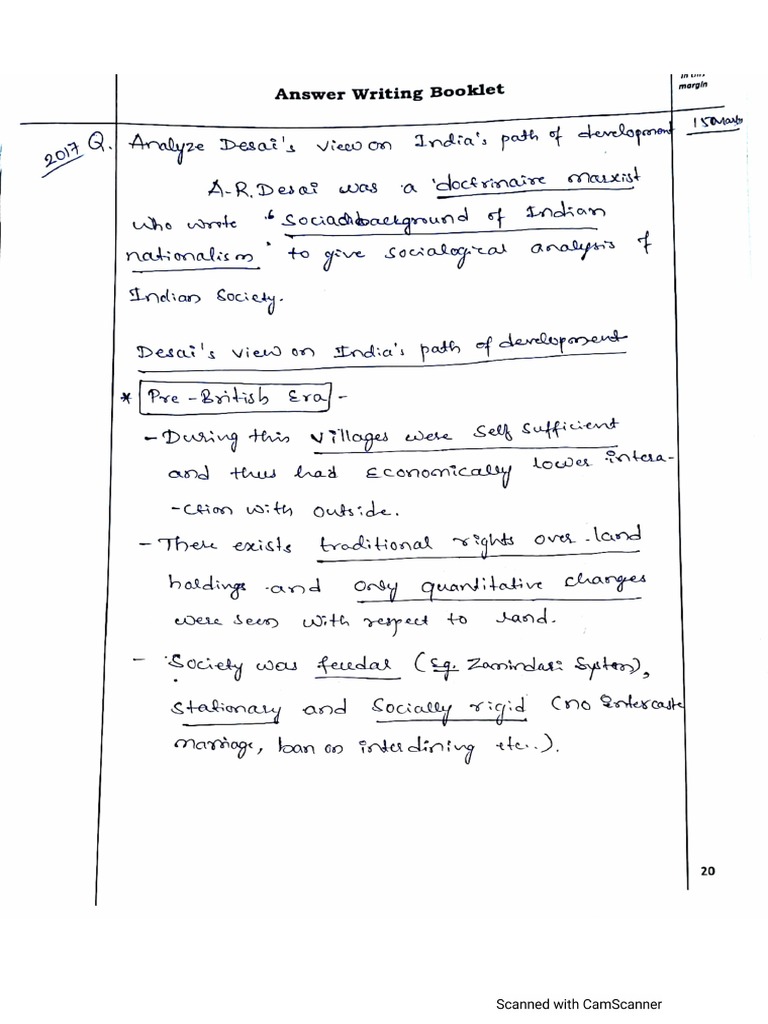 in this
margin
Answer Writing Booklet
2017 Q. Analyze Desai's view on India's path of development 15 Marks
A.R. Desai was a 'doctrinaire marxist
who wrote "Social background of Indian
nationalism" to give socialogical analysis of
Indian Society.
Desai's view on India's path of development
* Pre-British Era -
- During this villages were self sufficient
and thus had Economically lower intera-
-ction with outside.
- There exists traditional rights over land
holdings and only quantitative changes
were seen with respect to land.
- Society was feudal (Eg. Zamindari System),
Stationary and Socially rigid (no Intercaste
marriage, ban on interdining etc..).
20
Scanned with CamScanner